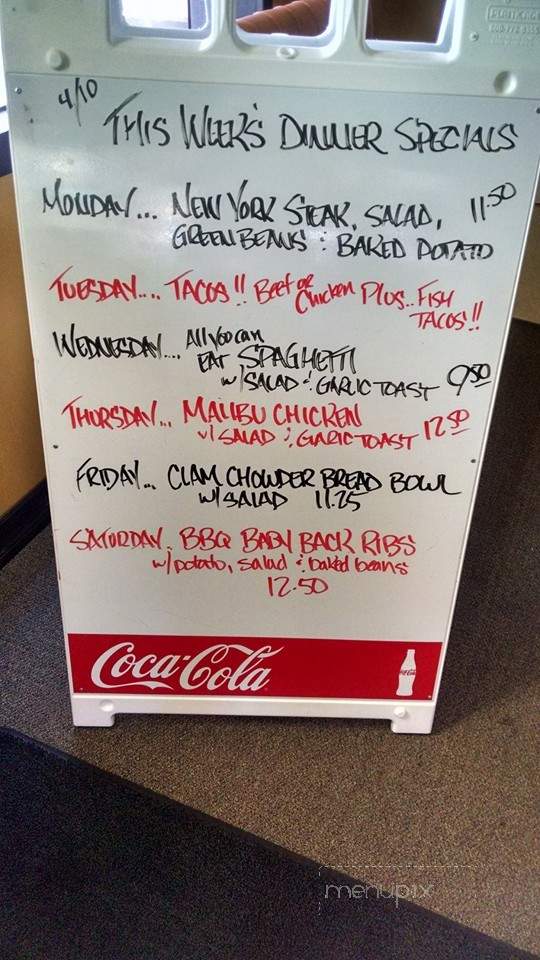 4/10
THIS WEEK'S DINNER SPECIALS
MONDAY... NEW YORK STEAK, SALAD, 11.50
GREEN BEANS & BAKED POTATO
TUESDAY.... TACOS!! Beef or Chicken Plus.. FISH TACOS!!
WEDNESDAY.... All you can
EAT SPAGHETTI
w/SALAD & GARLIC TOAST 9.50
THURSDAY... MALIBU CHICKEN
w/SALAD & GARLIC TOAST 12.50
FRIDAY... CLAM CHOWDER BREAD BOWL
w/SALAD 11.25
SATURDAY. BBQ BABY BACK RIBS
w/potato, salad & baked beans
12.50
Coca-Cola
menupix